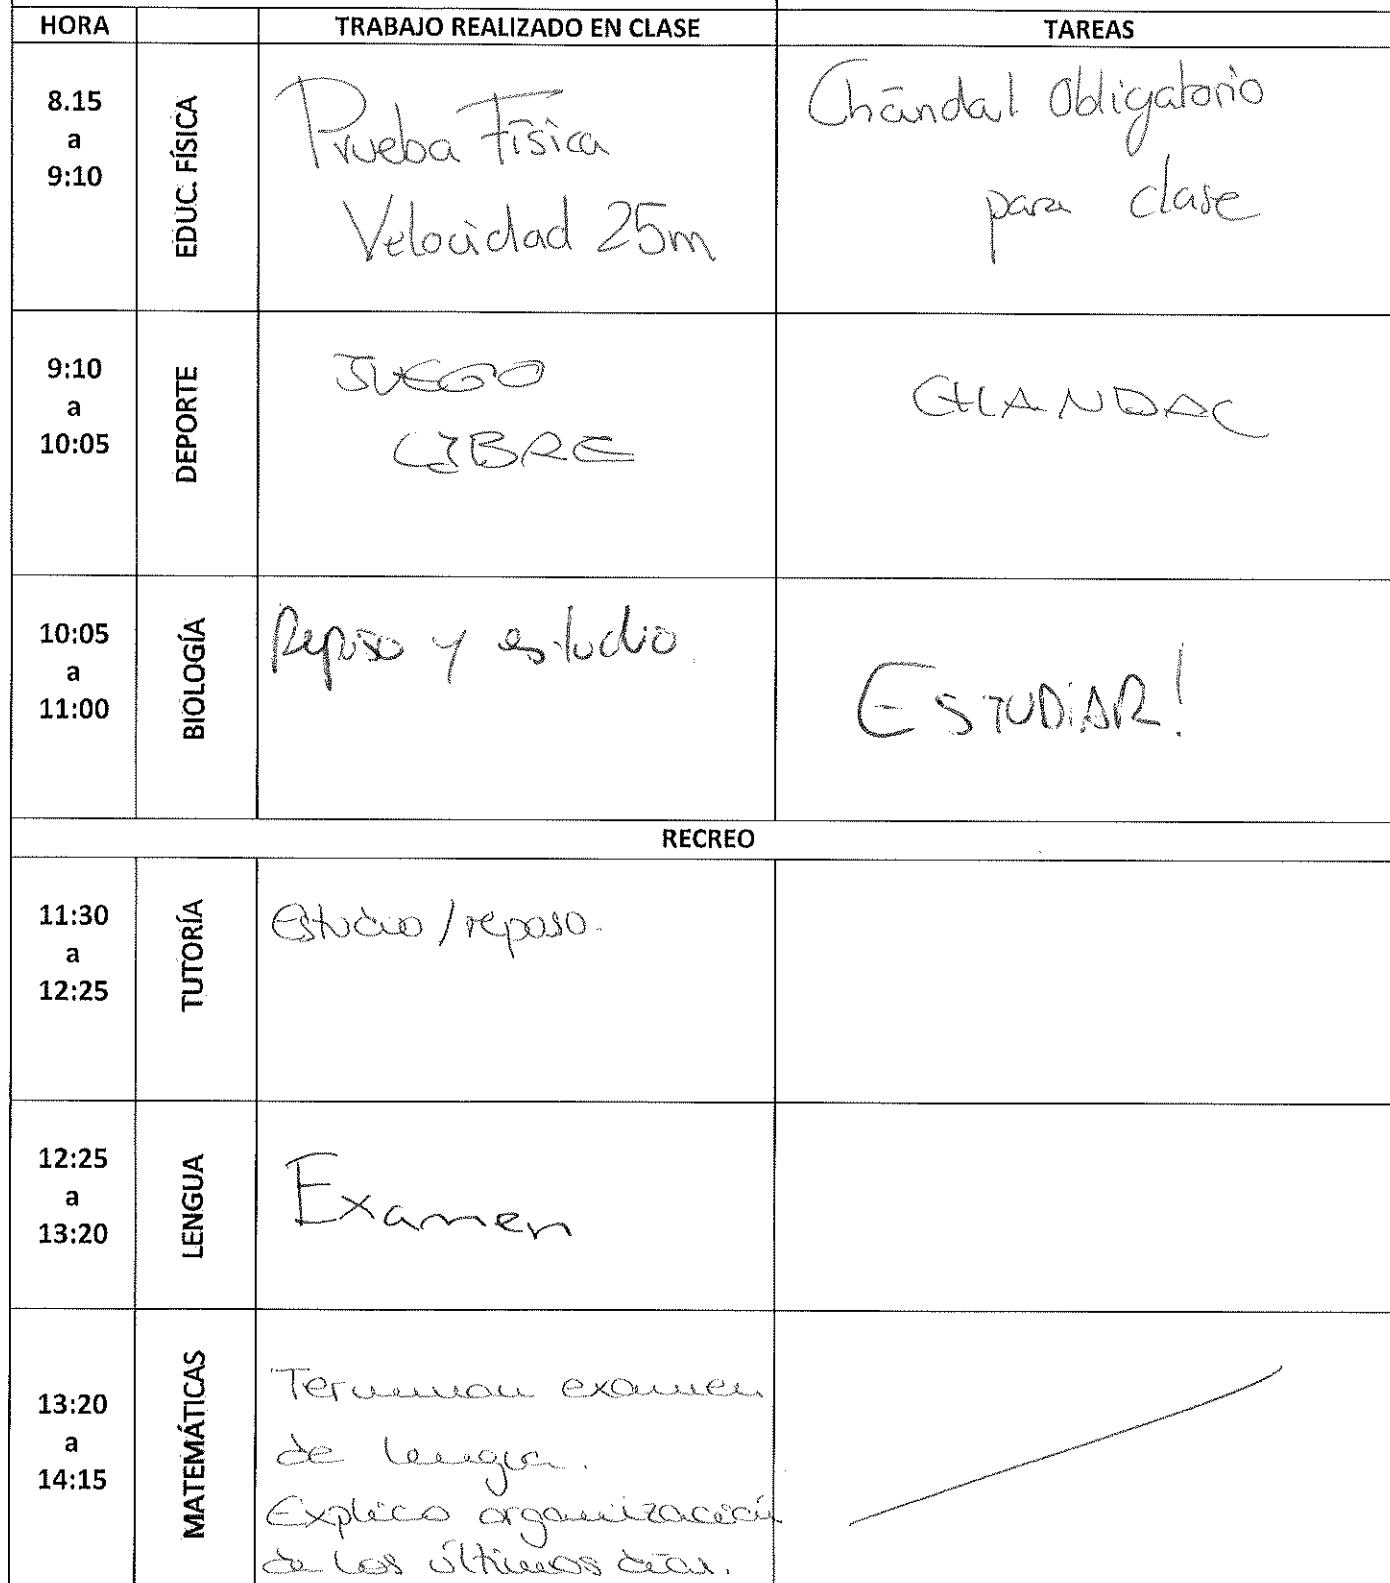 HORA TRABAJO REALIZADO EN CLASE TAREAS
8.15
a
9:10
EDUC. FÍSICA
Prueba Física
Velocidad 25m
Chándal Obligatorio
para clase
9:10
a
10:05
DEPORTE
JUEGO
LIBRE
CHANDAL
10:05
a
11:00
BIOLOGÍA
Repaso y estudio.
ESTUDIAR!
RECREO
11:30
a
12:25
TUTORÍA
Estudio / repaso.
12:25
a
13:20
LENGUA
Examen
13:20
a
14:15
MATEMÁTICAS
Terminan examen
de lengua.
Explico organización
de los últimos días.